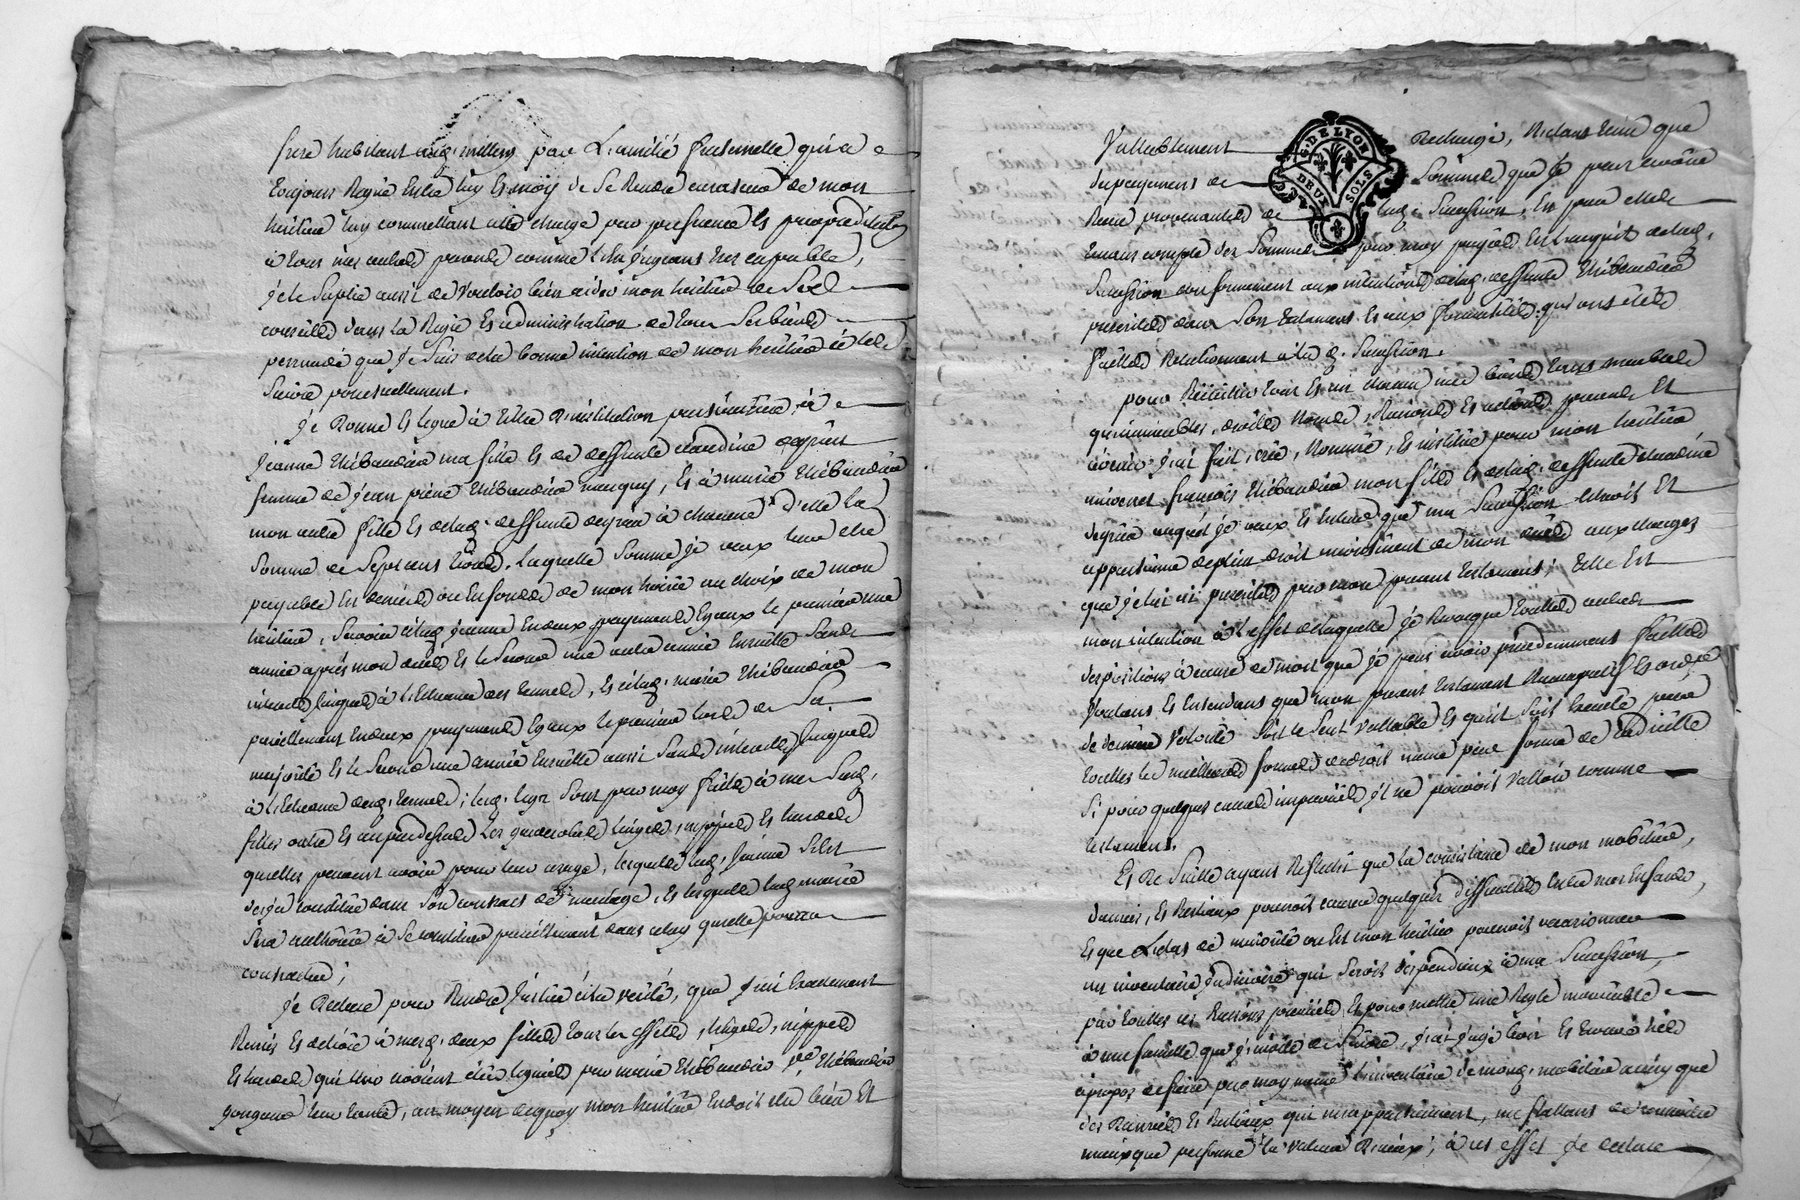 frere habitant aud. millery par L'amitié fraternelle qui a
toujours Regné Entre luy Et moy de se Rendre curateur de mon
héritier luy commettant cette charge par préférence Et
à tous mes autres parents comme l'En jugeant très capable,
je le Suplie aussi de vouloir bien aider mon héritier de Ses
conseils dans la Régie Et administration de tous Ses biens
persuadé que je Suis de la bonne intention de mon héritier à les
Suivre ponctuellement.
Je Donne Et legue à titre D'institution particulière à
Jeanne thibaudier ma fille Et de deffunte claudine
femme de jean pierre thibaudier Et à marie thibaudier
mon autre fille Et de lad. deffunte à chacune d'elle la
Somme de Sept cens livres, laquelle Somme je veux leur être
payable En deniers ou En fonds de mon hoirie au choix de mon
héritier, Savoir à lad. jeanne En deux payements Egaux le premier une
année après mon décès Et le Second une autre année Ensuitte Sans
interets jusques à l'Echeance des termes, Et à lad. marie thibaudier
pareillement En deux payements Egaux le premier lors de Sa
majorité Et le Second une année Ensuitte aussi Sans interets jusques
à l'Echeance desd. termes; lesd. legs Sont par moy faits à mes Susd.
filles outre Et pardessus Les linges, nippes Et hardes
quelles peuvent avoir pour leur usage, lesquels lad. Jeanne S'Est
desja constitué dans Son contract de mariage, Et lesquels lad. marie
Sera authorisé à Se constituer pareillement dans celuy quelle pourra
contracter;
Je Declare pour Rendre Justice à la vérité, que j'ai
Remis Et delivré à mesd. deux filles tous les effets, linges, nippes
Et hardes qui leur avoient été légués par marie thibaudier v.e thibaudier
leur tante, au moyen dequoy mon héritier En doit être bien Et
Vallablement Dechargé, Declarant Enfin que
du payement de Sommes que je peux avoir
Reçu provenantes de lad. Succession, En pour
tenir compte des Sommes par moy payées En l'acquit de lad.
Succession conformement aux intentions de lad. deffunte thibaudier
prescrites dans Son testament Et aux formalités qui ont étés
faittes Relativement à lad. Succession.
pour Héritier dans tous Et un chacun mes biens tant meubles
qu'immeubles, droits Noms, Raisons Et actions presents Et
avenir j'ai fait, créé, Nommé, Et institué pour mon héritier
universel françois thibaudier mon fils Et de lad. deffunte claudine
auquel je veux Et Entend que ma Succession Echoit Et
appartienne de plein droit incontinent de mon décès aux charges
que j'ai cy prescrites par mon present testament; telle Est
mon intention à l'effet de laquelle je Revoque touttes autres
dispositions à cause de mort que je peux avoir precedemment faittes
Voulant Et Entendant que mon present testament Et ordre
de derniere volonté Soit le Seul Vallable Et qu'il Soit Executé par
touttes les meilleures formes de droit même par forme de codicille
Si pour quelques causes imprévües il ne pouvoit Valloir comme
testament.
Et De Suitte ayant Reflechi que la consistance de mon mobilier,
denrées, Et Bestiaux pourroit causer quelques difficultés Entre mes Enfants,
Et que L'Etat de minorité ou Est mon héritier pourroit occasionner
un inventaire judiciaire qui Seroit dispendieux à ma Succession,
par touttes ces Raisons Et pour mettre une Regle invariable
à ma famille que j'invite de Suivre, j'ai jugé bon Et trouvé très
apropos de faire par moy meme l'inventaire de mond. mobilier ainsy que
des Denrées Et Bestiaux qui m'appartiennent, me flattant de connoitre
mieux que personne la valeur D'iceux; à cet effet je declare
G. DE LYON
DEUX SOLS